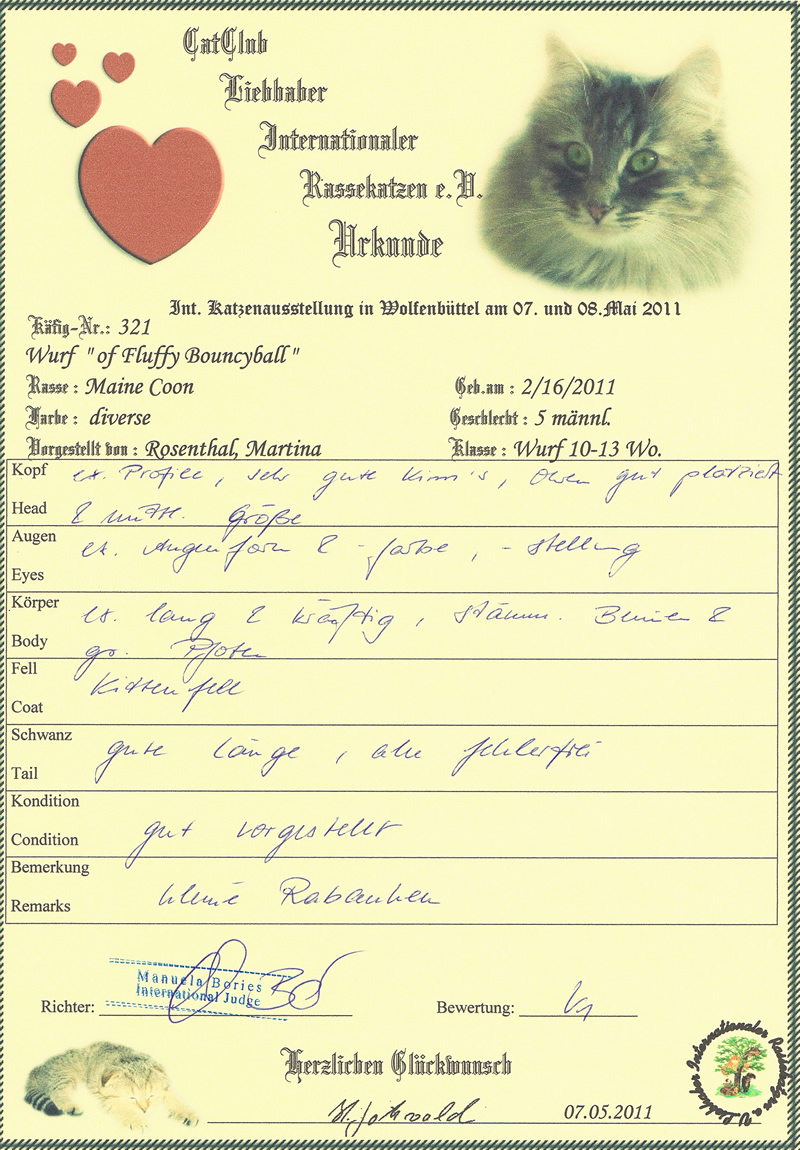 CatClub
Liebhaber
Internationaler
Rassekatzen e.V.
Urkunde
Int. Katzenausstellung in Wolfenbüttel am 07. und 08.Mai 2011
Käfig-Nr.: 321
Wurf "of Fluffy Bouncyball"
Rasse : Maine Coon Geb.am : 2/16/2011
Farbe : diverse Geschlecht : 5 männl.
Vorgestellt von : Rosenthal, Martina Klasse : Wurf 10-13 Wo.
Kopf ex. Profile, sehr gute Kinn's, Ohren gut platziert
Head & mittl. Größe
Augen ex. Augenform & -farbe, -stellung
Eyes
Körper ex. lang & kräftig, stämm. Beine &
Body gr. Pfoten
Fell Kittenfell
Coat
Schwanz gute Länge, alle fehlerfrei
Tail
Kondition
Condition gut vorgestellt
Bemerkung
Remarks kleine Rabauken
Manuela Bories
International Judge
Richter: Bewertung: V1
Herzlichen Glückwunsch
07.05.2011
Internationaler Rassekatzen e.V.